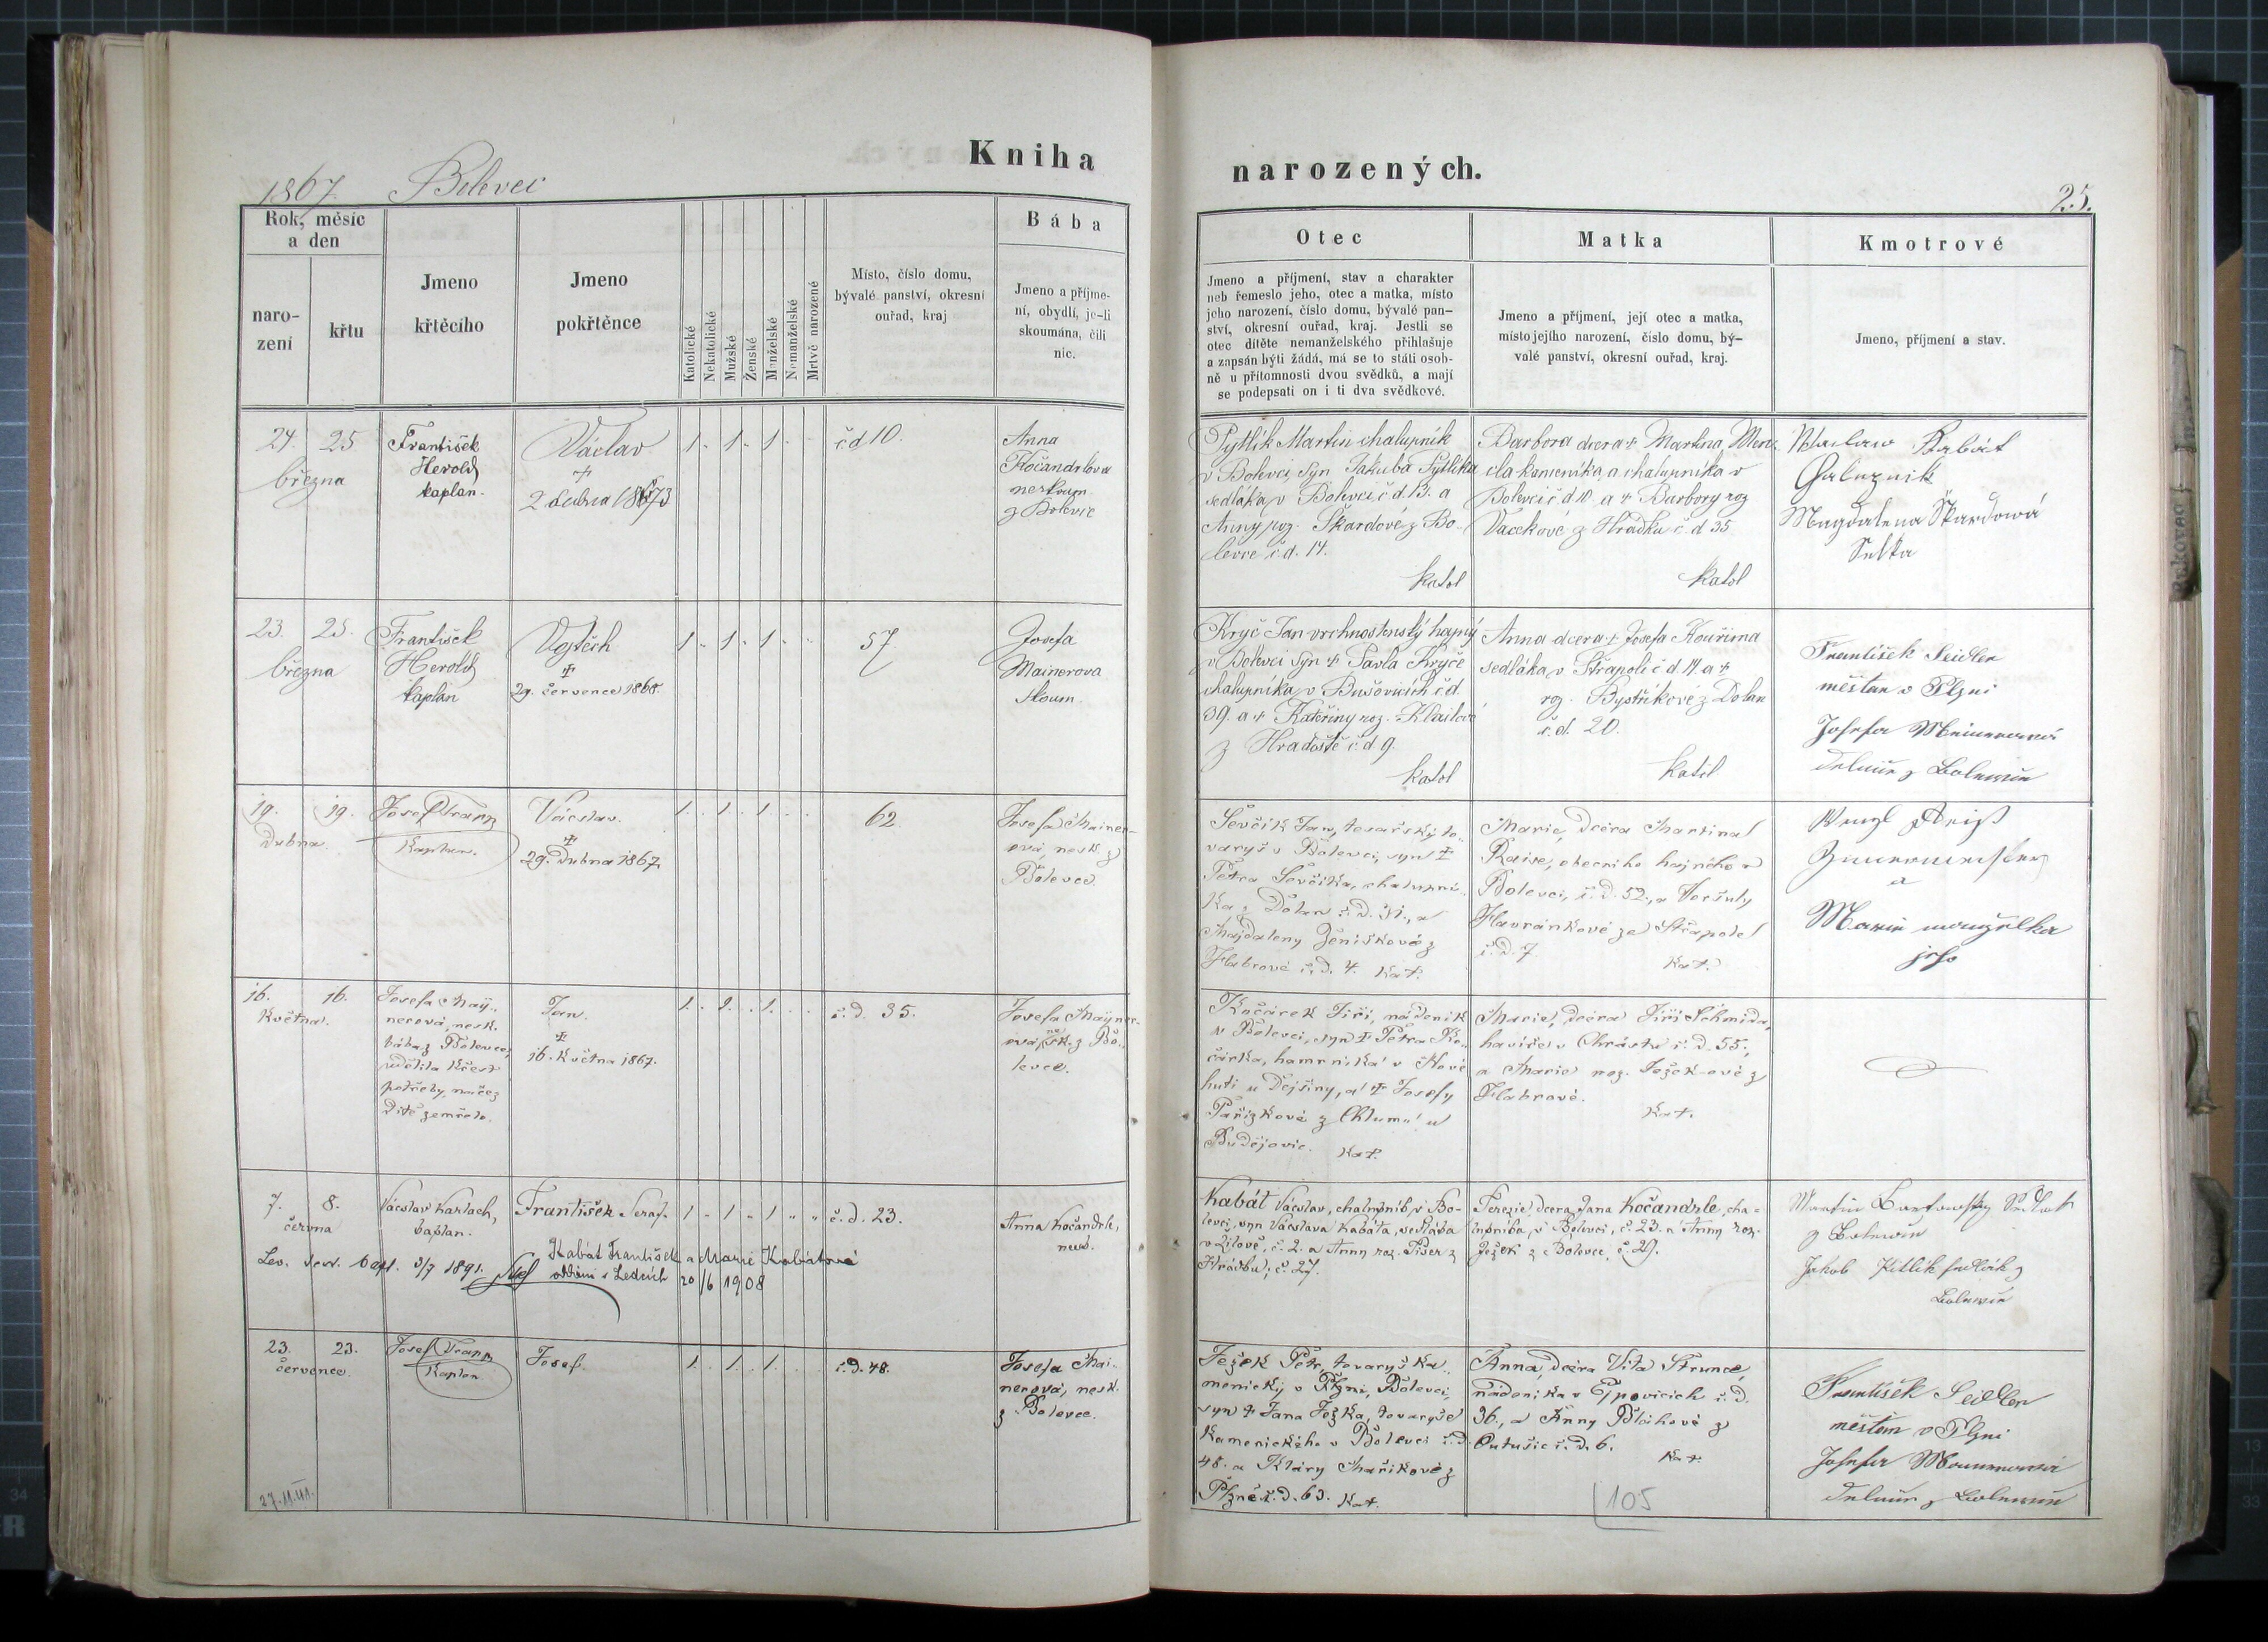 Kniha
1867. Bolevec
Rok, měsíc
a den
naro-
zení
křtu
Jmeno
křtěcího
Jmeno
pokřtěnce
Katolické
Nekatolické
Mužské
Ženské
Manželské
Nemanželské
Mrtvě narozené
Místo, číslo domu,
bývalé panství, okresní
ouřad, kraj
Bába
Jmeno a příjme-
ní, obydlí, je-li
skoumána, čili
nic.
24. 25
března
František
Herold
kaplan.
Václav
+
2 dubna 1873
1 1 1
č d 10.
Anna
Kočandrlova
neskoum
z Bolevce
23. 25.
března
František
Herold
kaplan
Vojtěch
+
29. července 1868.
1 1 1
57
Josefa
Mainerova
skoum.
19. 19.
Dubna.
Josef Franz
Kaplan.
Vácslav.
+
29. Dubna 1867.
1. 1. 1.
62.
Josefa Mainer-
ová, nesk. z
Bolevce.
16. 16.
Května.
Josefa May-
nerová, nesk.
bába z Bolevce,
udělila křest
potřeby, načež
Dítě zemřelo.
Jan.
+
16. Května 1867.
1. 1. 1.
č. d. 35.
Josefa Mayner-
ová, nesk. z Bo-
levce.
7. 8.
června
Vácslav Karlach,
kaplan.
František Seraf.
1 1 1
č. d. 23.
Anna Kočandrle,
nesk.
Kabát František a Marie Kabátová
oddáni v Ledcích 20/6 1908
23. 23.
července.
Josef Franz
Kaplan
Josef.
1. 1. 1.
č. d. 48.
Josefa Mai-
nerová, nesk.
z Bolevce.
27.11.41.
narozených.
25.
Otec
Jmeno a příjmení, stav a charakter
neb řemeslo jeho, otec a matka, místo
jeho narození, číslo domu, bývalé pan-
ství, okresní ouřad, kraj. Jestli se
otec dítěte nemanželského přihlašuje
a zapsán býti žádá, má se to státi osob-
ně u přítomnosti dvou svědků, a mají
se podepsati on i ti dva svědkové.
Matka
Jmeno a příjmení, její otec a matka,
místo jejího narození, číslo domu, bý-
valé panství, okresní ouřad, kraj.
Kmotrové
Jmeno, příjmení a stav.
Pytlík Martin chalupník
v Bolevci, syn Jakuba Pytlíka
sedláka v Bolevci č d 13. a
Anny roz. Škardové z Bo-
levce č. d. 14.
katol
Barbora dcera + Martina Men-
cla kameníka, a chalupníka v
Bolevci č d 10. a + Barbory roz
Vackové z Hrádku č. d 35
katol
Kabát
Magdalena Škardowá
Kryč Jan vrchnostenský hajný
v Bolevci syn + Pavla Kryče
chalupníka v Bušovicích č d.
39. a + Kateřiny roz. Klailové
z Hradiště č d 9.
katol
Anna dcera + Josefa Kouřima
sedláka v Střapoli č d. 14. a +
rz. Bystřikové z Dolan
č. d. 20.
katol
František Seidler
měštan v Plzni
Josefa
Ševčík Jan, tesařský to-
varyš v Bolevci, syn +
Petra Ševčíka, chalupní-
ka z Dolan č. d. 31., a
Majdaleny Ženíškové z
Habrové č. d. 4. Kat.
Marie, dcéra Martina
Raise, obecního hajného v
Bolevci, č. d. 52., a Voršuly
Havránkové ze Střapole
č. d. 7. Kat.
a
Marie manželka
jeho
Kočárek Jiří, nádeník
v Bolevci, syn + Petra Ko-
čárka, hamrníka v Nové
huti u Dejšiny, a + Josefy
Pařízkové z Chlumu u
Budějovic. Kat.
Marie, dcéra Jiří Schmida,
havíře v Chrástu č. d. 55.,
a Marie roz. Ježek-ové z
Habrové.
Kat.
Kabát Vácslav, chalupník v Bo-
levci, syn Vácslava Kabáta, sedláka
v Žilově, č. 2. a Anny roz. Piser z
Hrádku, č. 27.
Terezie, dcera Jana Kočandrle, cha-
lupníka v Bolevci, č. 23. a Anny roz.
Ježek z Bolevce, č. 29.
Martin
Jakob
Ježek Petr, tovaryš ka-
menický v Plzni, Bolevci,
syn + Jana Ježka, tovaryše
Kamenického v Bolevci č. d.
48. a Kláry Maříkové z
Plzně č. d. 63. Kat.
Anna, dcéra Víta Strunce,
nádeníka v Ejpovicích č. d.
36., a Anny Bláhové z
Lutušic č. d. 6.
Kat.
František Seidler
měštan v Plzni
Josefa
105